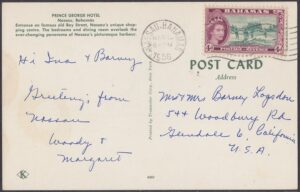 PRINCE GEORGE HOTEL
Nassau, Bahamas
Entrance on famous old Bay Street, Nassau's unique shopping centre. The bedrooms and dining room overlook the ever-changing panorama of Nassau's picturesque harbour.
BAHAMAS
4d
Hi Ina & Barney
Greetings from
Nassau
Woody &
Margaret
POST CARD
Address
Mr & Mrs Barney Logsdon
544 Woodbury Rd
Glendale 6, California
U.S.A.
K